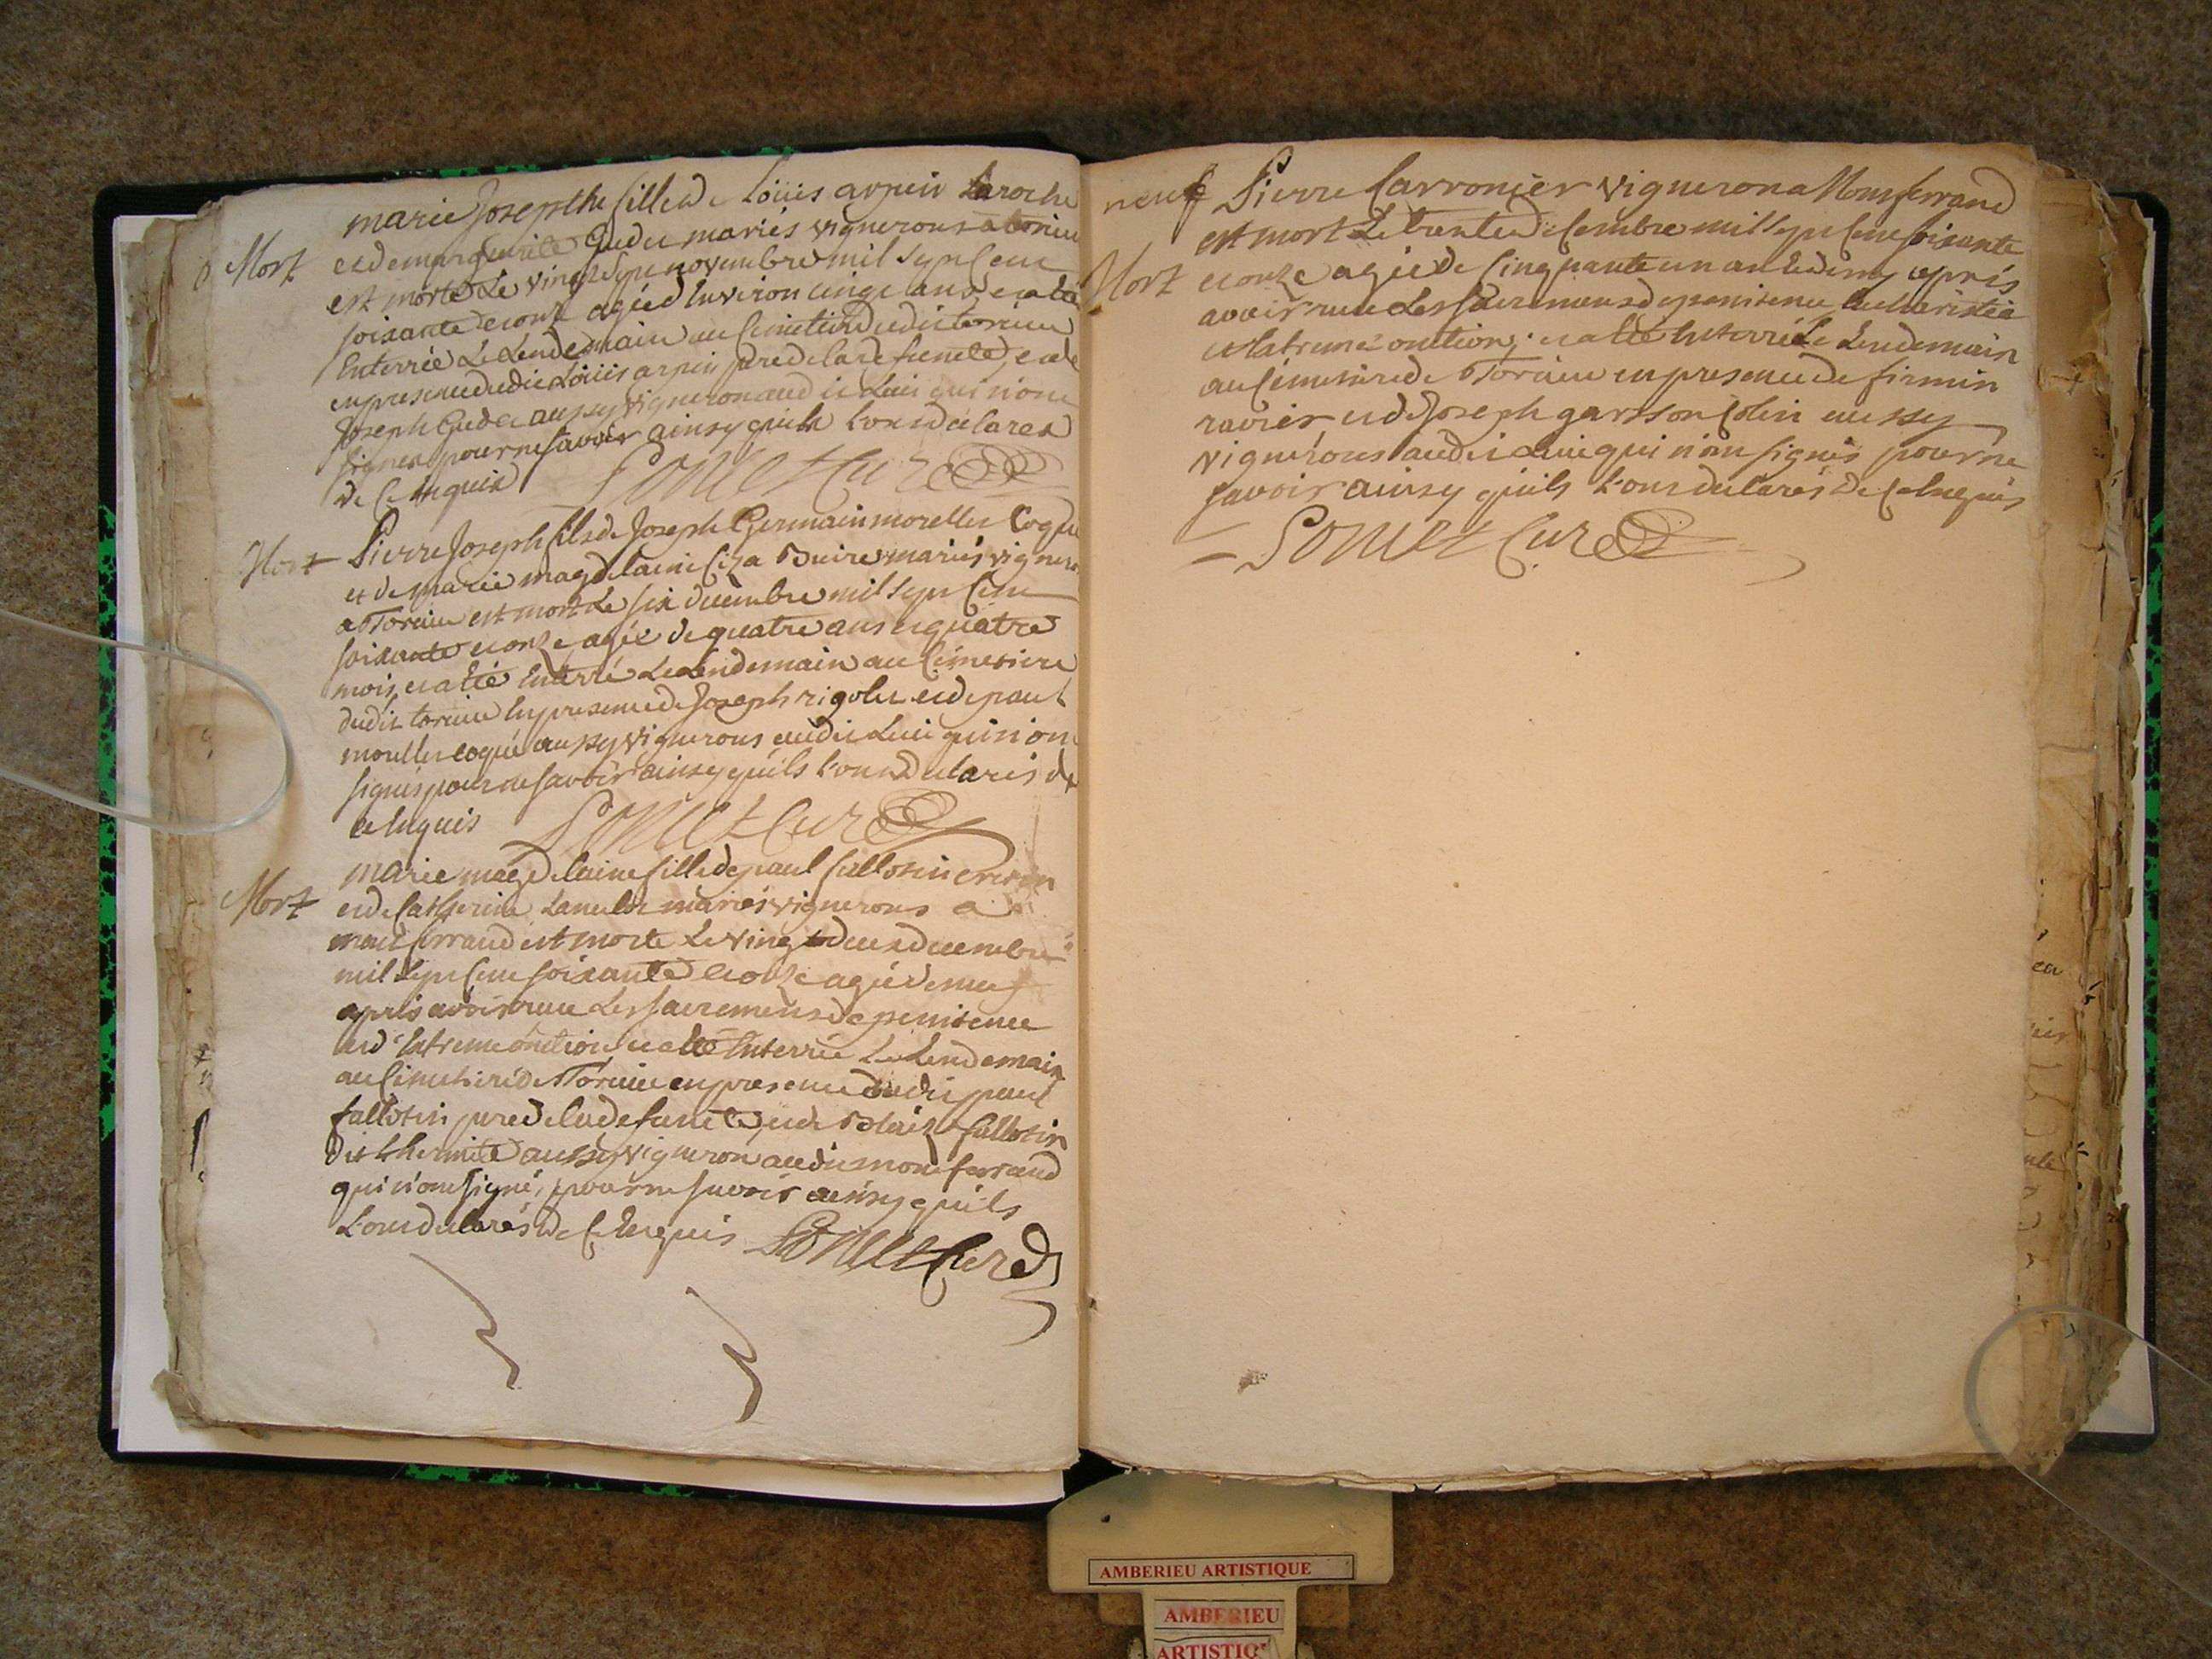 marie Josepthe fille de Loüis arpin Laroche
Mort
et de marguerite Gudet mariés vignerons a torcieu
est morte Le vingt Sept novembre mil Sept Cent
soixante et onze agée d'Environ cinq ans, et a eté
Enterrée Le Lendemain au Cimetiere dudit torcieu
en presence dudit Loüis arpin pere de la defuncte, et de
Joseph Gudet aussy vigneron audit Lieu qui n'ont
signés pour ne savoir ainsy quils L'ont déclarés
de Ce Enquis
Somet Curé
Mort
Pierre Joseph fils de Joseph Germain morellet Coque
et de marie magdelaine Ciza Buire mariés vignerons
a Torcieu est mort Le six decembre mil Sept Cent
soixante et onze agée de quatre ans et quatre
mois, et a eté Enterré Le Lendemain au Cimetiere
dudit torcieu En presence de Joseph rigolet et de paul
morellet coque aussy vignerons audit Lieu qui n'ont
signés pour ne savoir ainsy quils L'ont declarés de
ce Enquis
Somet Curé
marie magdelaine fille de paul fallotin
Mort
et de Catherine mariés vignerons a
montferrand est morte Le vingt deux decembre
mil Sept Cent soixante et onze agée de neuf
après avoir receu Les sacremens de penitence
et d'Extreme onction, et a eté Enterrée Le Lendemain
au Cimetiere de Torcieu en presence dudit paul
fallotin pere de la defuncte, et de Blaize fallotin
dit L'hermite aussy vigneron audit montferrand
qui n'ont signé, pour ne savoir ainsy quils
L'ont declarés de Ce Enquis Somet Curé
neuf Pierre Carronier vigneron a Montferrand
est mort Le trente decembre mil Sept Cent soixante
Mort
et onze agée de Cinquante un an et demy après
avoir receu Les sacremens de penitence, Eucharistie
et Extreme onction; et a eté Enterré Le Lendemain
au Cimetiere de Torcieu en presence de firmin
ravier et de Joseph garsson Colin aussy
vignerons audit Lieu qui n'ont signés pour ne
savoir ainsy quils L'ont declarés De Ce Enquis
Somet Curé
AMBERIEU ARTISTIQUE
AMBERIEU
ARTISTIQ